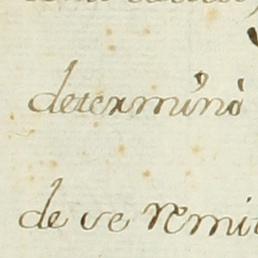 determinò
de se remi